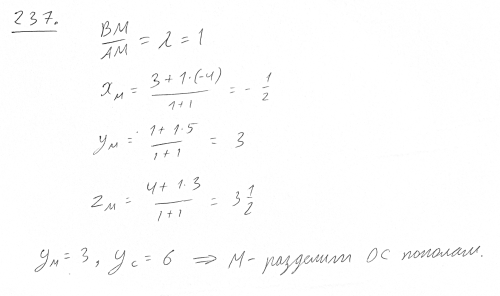 237.
BM/AM = λ = 1
x_M = (3 + 1·(-4))/(1+1) = - 1/2
y_M = (1 + 1·5)/(1+1) = 3
z_M = (4 + 1·3)/(1+1) = 3 1/2
y_M = 3, y_C = 6 ⇒ M - разделит OC пополам.